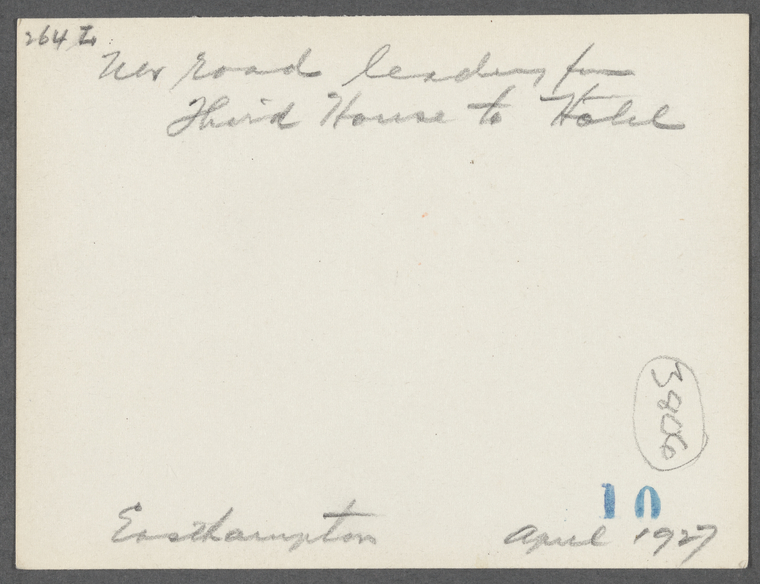 264 L
New road leading from
Third House to Hotel
3806
10
Easthampton April 1927